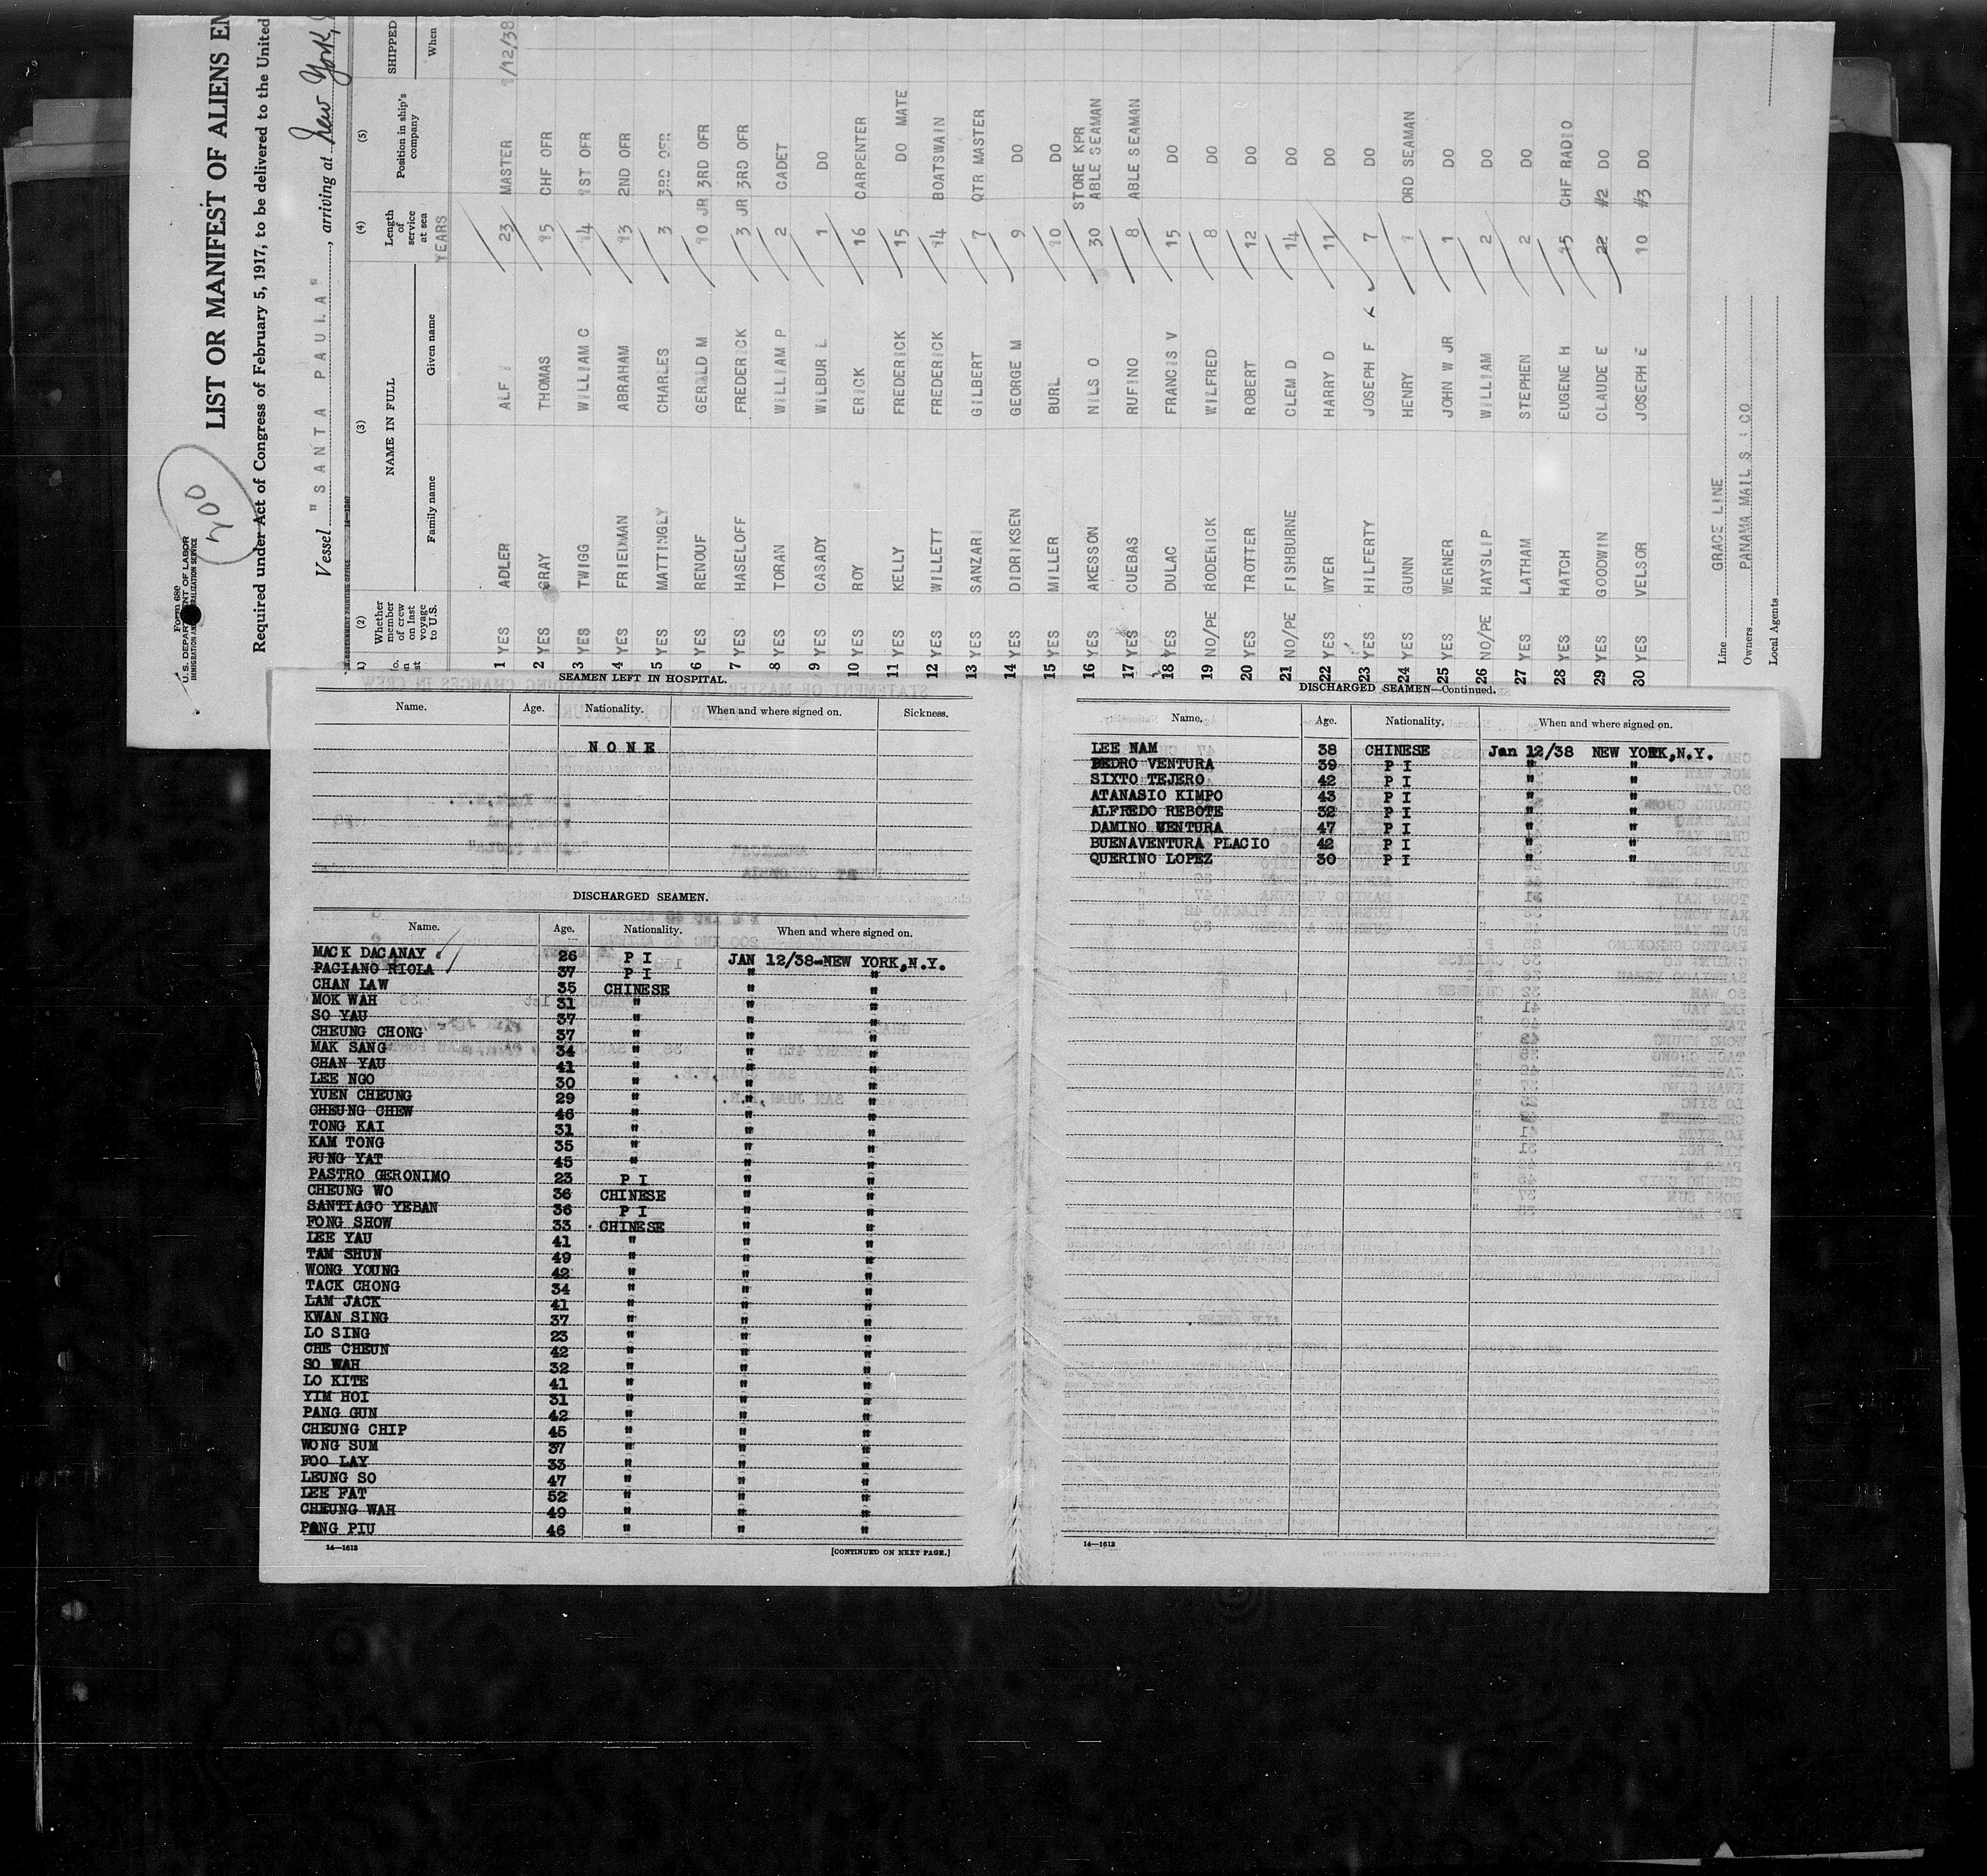 Form 680
U. S. DEPARTMENT OF LABOR
IMMIGRATION AND NATURALIZATION SERVICE
200
LIST OR MANIFEST OF ALIENS EM
Required under Act of Congress of February 5, 1917, to be delivered to the United
Vessel "SANTA PAULA", arriving at New York,
(2) (3) (4) (5)
Whether member of crew on last voyage to U.S. NAME IN FULL Family name Given name Length of service at sea YEARS Position in ship's company SHIPPED When
1 YES ADLER ALF I 23 MASTER 1/12/38
2 YES GRAY THOMAS 15 CHF OFR
3 YES TWIGG WILLIAM C 14 1ST OFR
4 YES FRIEDMAN ABRAHAM 13 2ND OFR
5 YES MATTINGLY CHARLES 3 3RD OFR
6 YES RENOUF GERALD M 10 JR 3RD OFR
7 YES HASELOFF FREDERICK 3 JR 3RD OFR
8 YES TORAN WILLIAM P 2 CADET
9 YES CASADY WILBUR L 1 DO
10 YES ROY ERICK 16 CARPENTER
11 YES KELLY FREDERICK 15 DO MATE
12 YES WILLETT FREDERICK 14 BOATSWAIN
13 YES SANZARI GILBERT 7 QTR MASTER
14 YES DIDRIKSEN GEORGE M 9 DO
15 YES MILLER BURL 10 DO
16 YES AKESSON NILS O 30 STORE KPR ABLE SEAMAN
17 YES CUEBAS RUFINO 8 ABLE SEAMAN
18 YES DULAC FRANCIS V 15 DO
19 NO/PE RODERICK WILFRED 8 DO
20 YES TROTTER ROBERT 12 DO
21 NO/PE FISHBURNE CLEM D 14 DO
22 YES WYER HARRY D 11 DO
23 YES HILFERTY JOSEPH F 7 DO
24 YES GUNN HENRY 1 ORD SEAMAN
25 YES WERNER JOHN W JR 1 DO
26 NO/PE HAYSLIP WILLIAM 2 DO
27 YES LATHAM STEPHEN 2 DO
28 YES HATCH EUGENE H 15 CHF RADIO
29 YES GOODWIN CLAUDE E 22 #2 DO
30 YES VELSOR JOSEPH E 10 #3 DO
Line GRACE LINE
Owners PANAMA MAIL S S CO
Local Agents
SEAMEN LEFT IN HOSPITAL.
Name. Age. Nationality. When and where signed on. Sickness.
NONE
DISCHARGED SEAMEN.
Name. Age. Nationality. When and where signed on.
MACK DACANAY 26 P I JAN 12/38-NEW YORK,N.Y.
PACIANO RIOLA 37 P I " "
CHAN LAW 35 CHINESE " "
MOK WAH 31 " " "
SO YAU 37 " " "
CHEUNG CHONG 37 " " "
MAK SANG 34 " " "
CHAN YAU 41 " " "
LEE NGO 30 " " "
YUEN CHEUNG 29 " " "
CHEUNG CHEW 46 " " "
TONG KAI 31 " " "
KAM TONG 35 " " "
FUNG YAT 45 " " "
PASTRO GERONIMO 23 P I " "
CHEUNG WO 36 CHINESE " "
SANTIAGO YEBAN 36 P I " "
FONG SHOW 33 CHINESE " "
LEE YAU 41 " " "
TAM SHUN 49 " " "
WONG YOUNG 42 " " "
TACK CHONG 34 " " "
LAM JACK 41 " " "
KWAN SING 37 " " "
LO SING 23 " " "
CHE CHEUN 42 " " "
SO WAH 32 " " "
LO KITE 41 " " "
YIM HOI 31 " " "
PANG GUN 42 " " "
CHEUNG CHIP 45 " " "
WONG SUM 37 " " "
FOO LAY 33 " " "
LEUNG SO 47 " " "
LEE FAT 52 " " "
CHEUNG WAH 49 " " "
PANG PIU 46 " " "
14—1613 [CONTINUED ON NEXT PAGE.]
DISCHARGED SEAMEN—Continued.
Name. Age. Nationality. When and where signed on.
LEE NAM 38 CHINESE Jan 12/38 NEW YORK,N.Y.
PEDRO VENTURA 39 P I " "
SIXTO TEJERO 42 P I " "
ATANASIO KIMPO 43 P I " "
ALFREDO REBOTE 32 P I " "
DAMINO VENTURA 47 P I " "
BUENAVENTURA PLACIO 42 P I " "
QUERINO LOPEZ 30 P I " "
14—1613